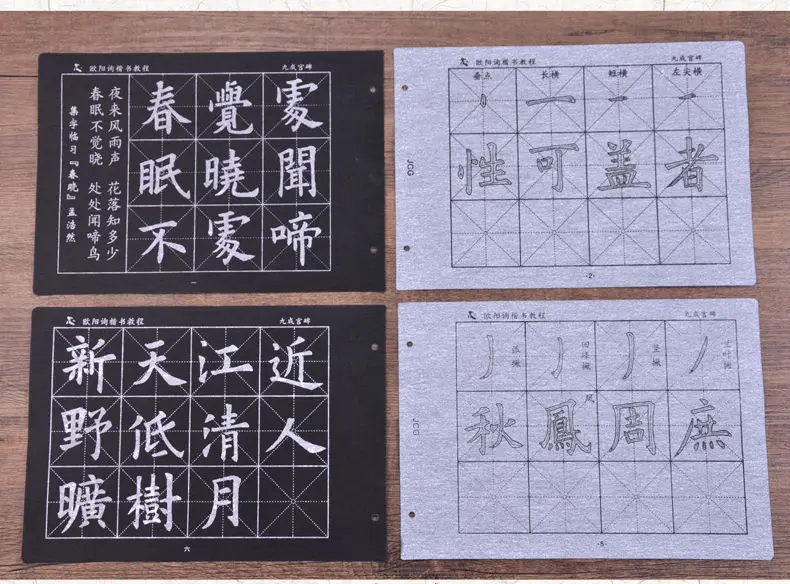 欧阳询楷书教程 九成宫碑
集字临习『春晓』孟浩然
春眠不觉晓 处处闻啼鸟
夜来风雨声 花落知多少
春眠不
覺曉處
處聞啼
一
欧阳询楷书教程 九成宫碑
垂点 长横 短横 左尖横
性 可 盖 者
JCG
·2·
欧阳询楷书教程 九成宫碑
新野曠
天低樹
江清月
近人
六
欧阳询楷书教程 九成宫碑
弧撇 回锋撇 竖撇 兰叶撇
风
秋 鳳 周 庶
JCG
·5·